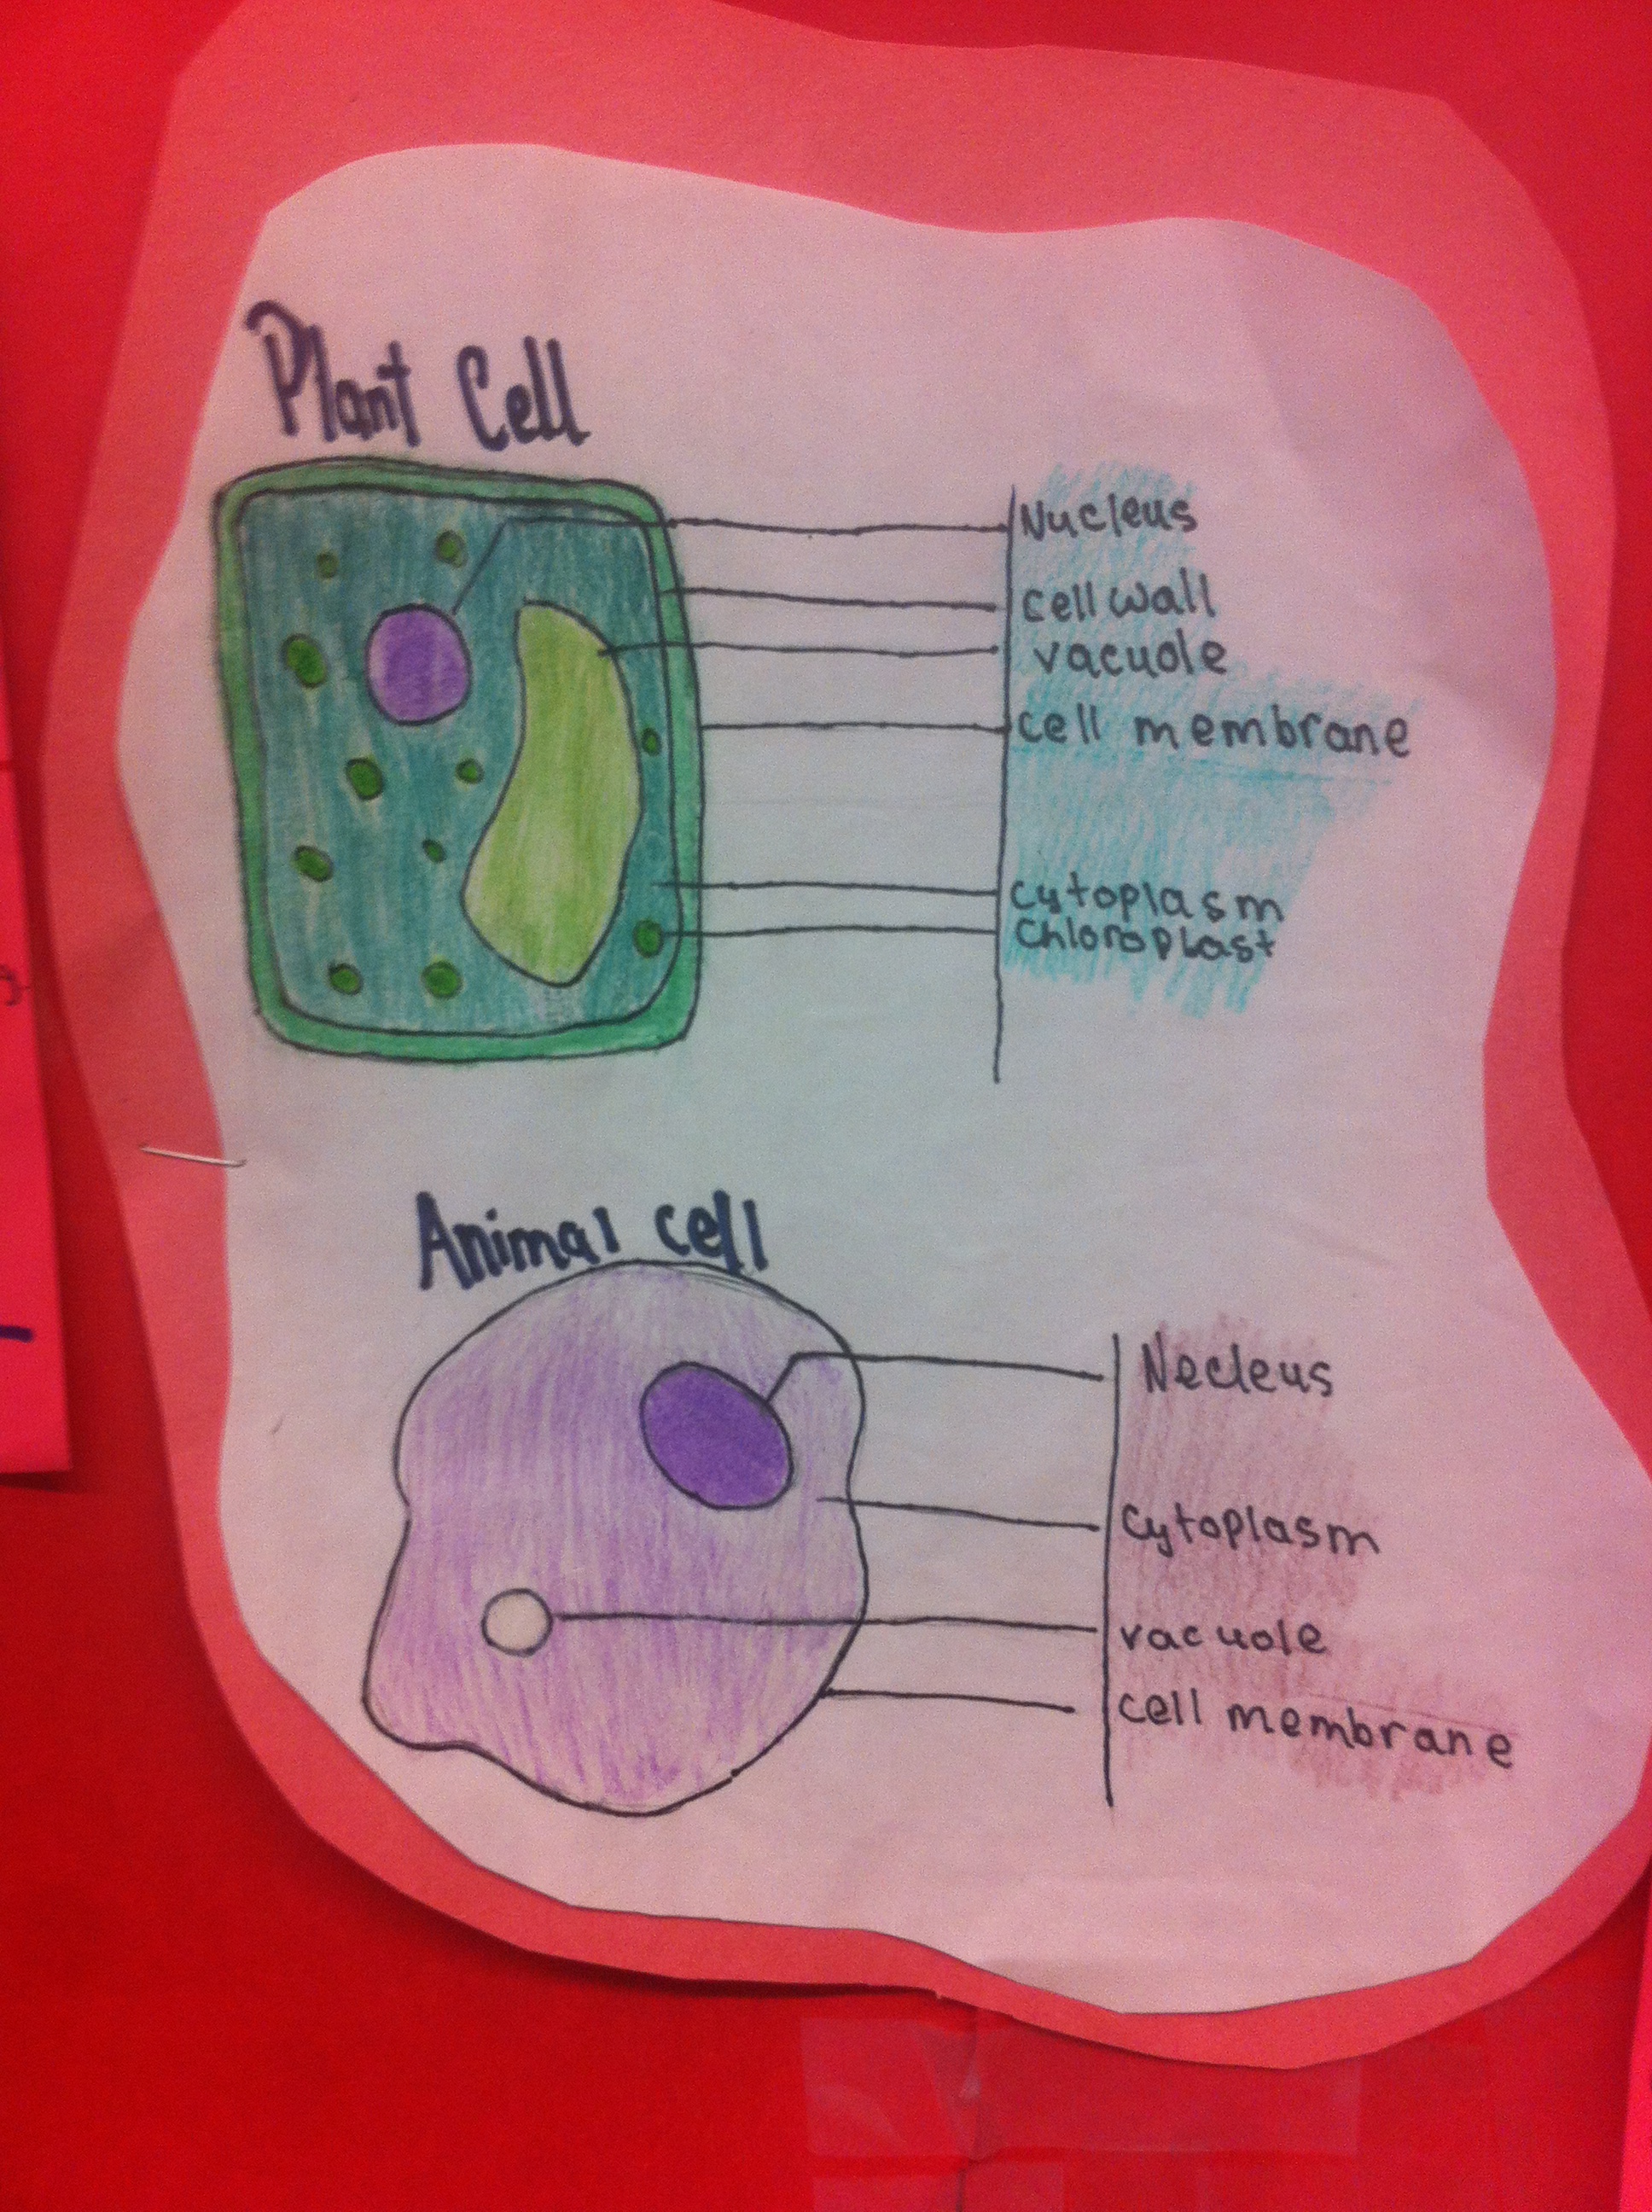 Plant Cell
Nucleus
cell wall
vacuole
cell membrane
cytoplasm
Chloroplast
Animal cell
Necleus
cytoplasm
vacuole
cell membrane